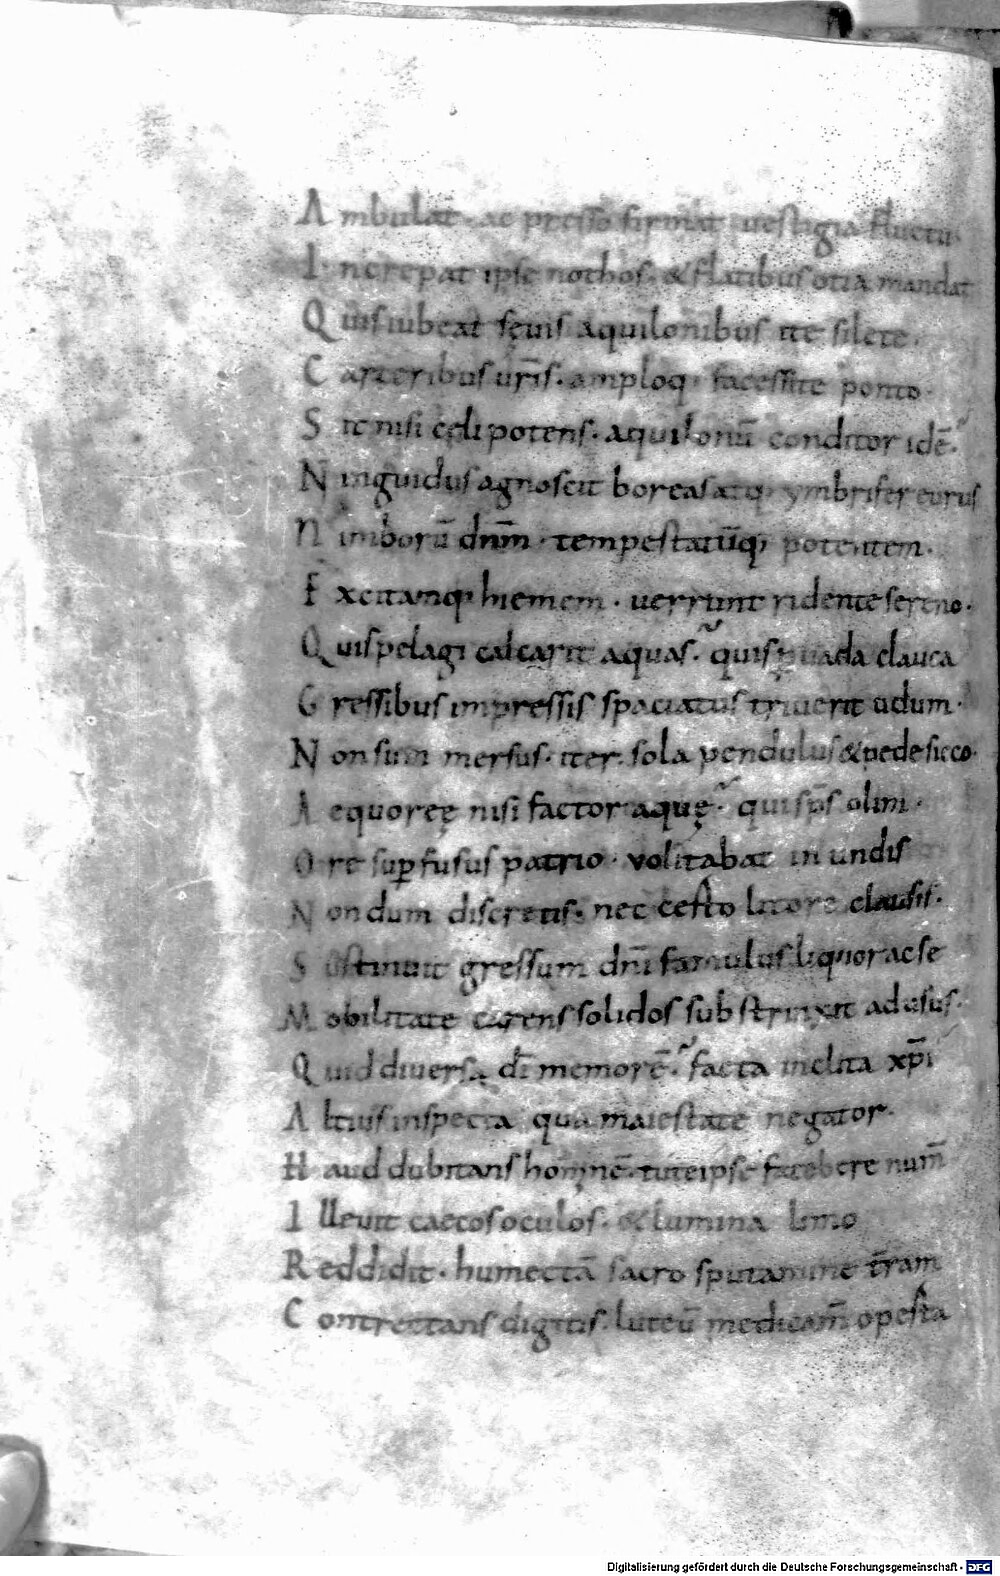 Ambulat. ac presso firmat uestigia fluctu.
Increpat ipse nothos. & flatibus otia mandat
Quis iubeat sęuis aquilonibus ite silete.
Carceribus urīs. amploq; facessite ponto.
Sit nisi cęli potens. aquilonū conditor idē.
Ninguidus agnoscit boreas atq; ymbrifer eurus
Nimborū dnm̄. tempestatūq; potentem.
Excitamq; hiemem. uerrunt ridente sereno.
Quis pelagi calcarit aquas. quis uada clauca
Gressibus impressis spaciatus triuerit udum.
Non sum mersus. iter. sola pendulus & pede sicco.
Aequoreę nisi factor aquę. qui sp̄s olim.
Ore sup̱fusus patrio. volitabat in undis
Nondum discretis. nec certo litore clausis.
Sustinuit gressum dnī famulus liquor ac se
Mobilitate carens solidos substrinxit ad usus.
Quid diuersa dī memorē. facta inclita xp̄i
Altius inspecta qua maiestate negator.
Haud dubitans hominē. tute ipse fatebere num̄
Illeuit caecos oculos. & lumina limo
Reddidit. humectā sacro sputamine tr̄am
Contrectans digitis. luteū medicam̄ opesta